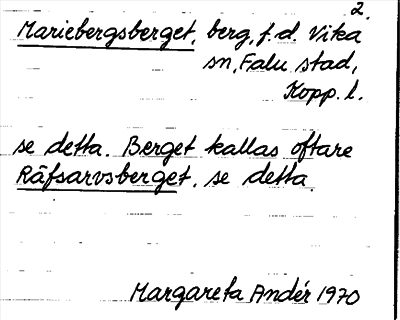 2.
Mariebergsberget, berg, f.d. Vika
sn, Falu stad,
Kopp. l.
se detta. Berget kallas oftare
Räfsarvsberget, se detta.
Margareta Andér 1970